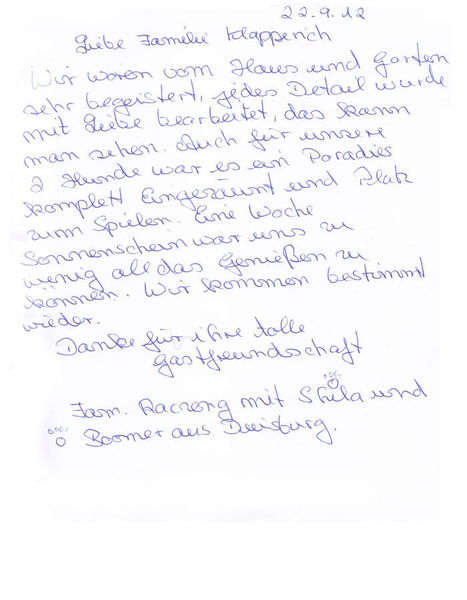 22.9.12
Liebe Familie Klapperich
Wir waren vom Haus und Garten
sehr begeistert, jedes Detail wurde
mit Liebe bearbeitet, das kann
man sehen. Auch für unsere
2 Hunde war es ein Paradies
komplett Eingezäunt und Platz
zum Spielen. Eine Woche
Sonnenschein war uns zu
wenig all das Genießen zu
können. Wir kommen bestimmt
wieder.
Danke für ihre tolle
Gastfreundschaft
Fam. mit Shila und
Boomer aus Duisburg.